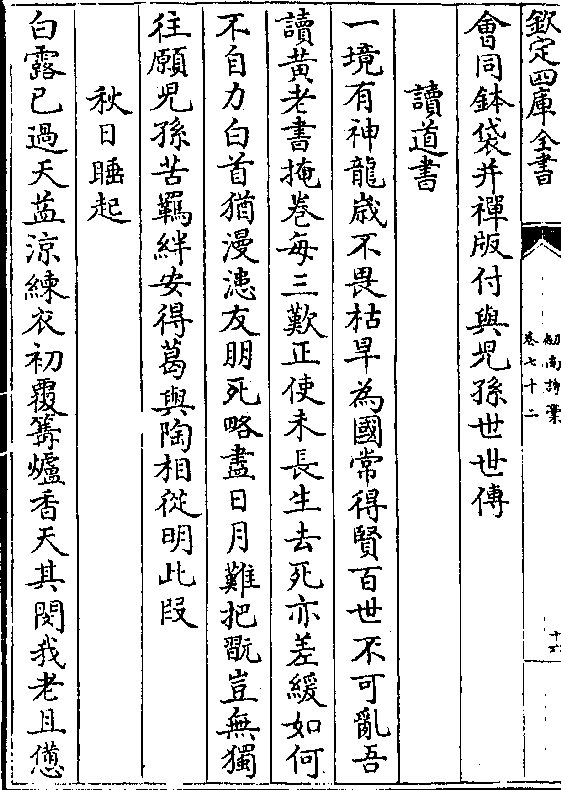 欽定四庫全書
劒南詩藳
卷七十二
會同鉢袋并禪版付與児孫世世傳
讀道書
一境有神龍歳不畏枯旱為國常得賢百世不可亂吾
讀黄老書掩卷每三歎正使未長生去死亦差緩如何
不自力白首猶漫漶友朋死略盡日月難把翫豈無獨
往願児孫苦羈絆安得葛與陶相從明此段
秋日睡起
白露已過天益涼練衣初覆篝爐香天其閔我老且憊